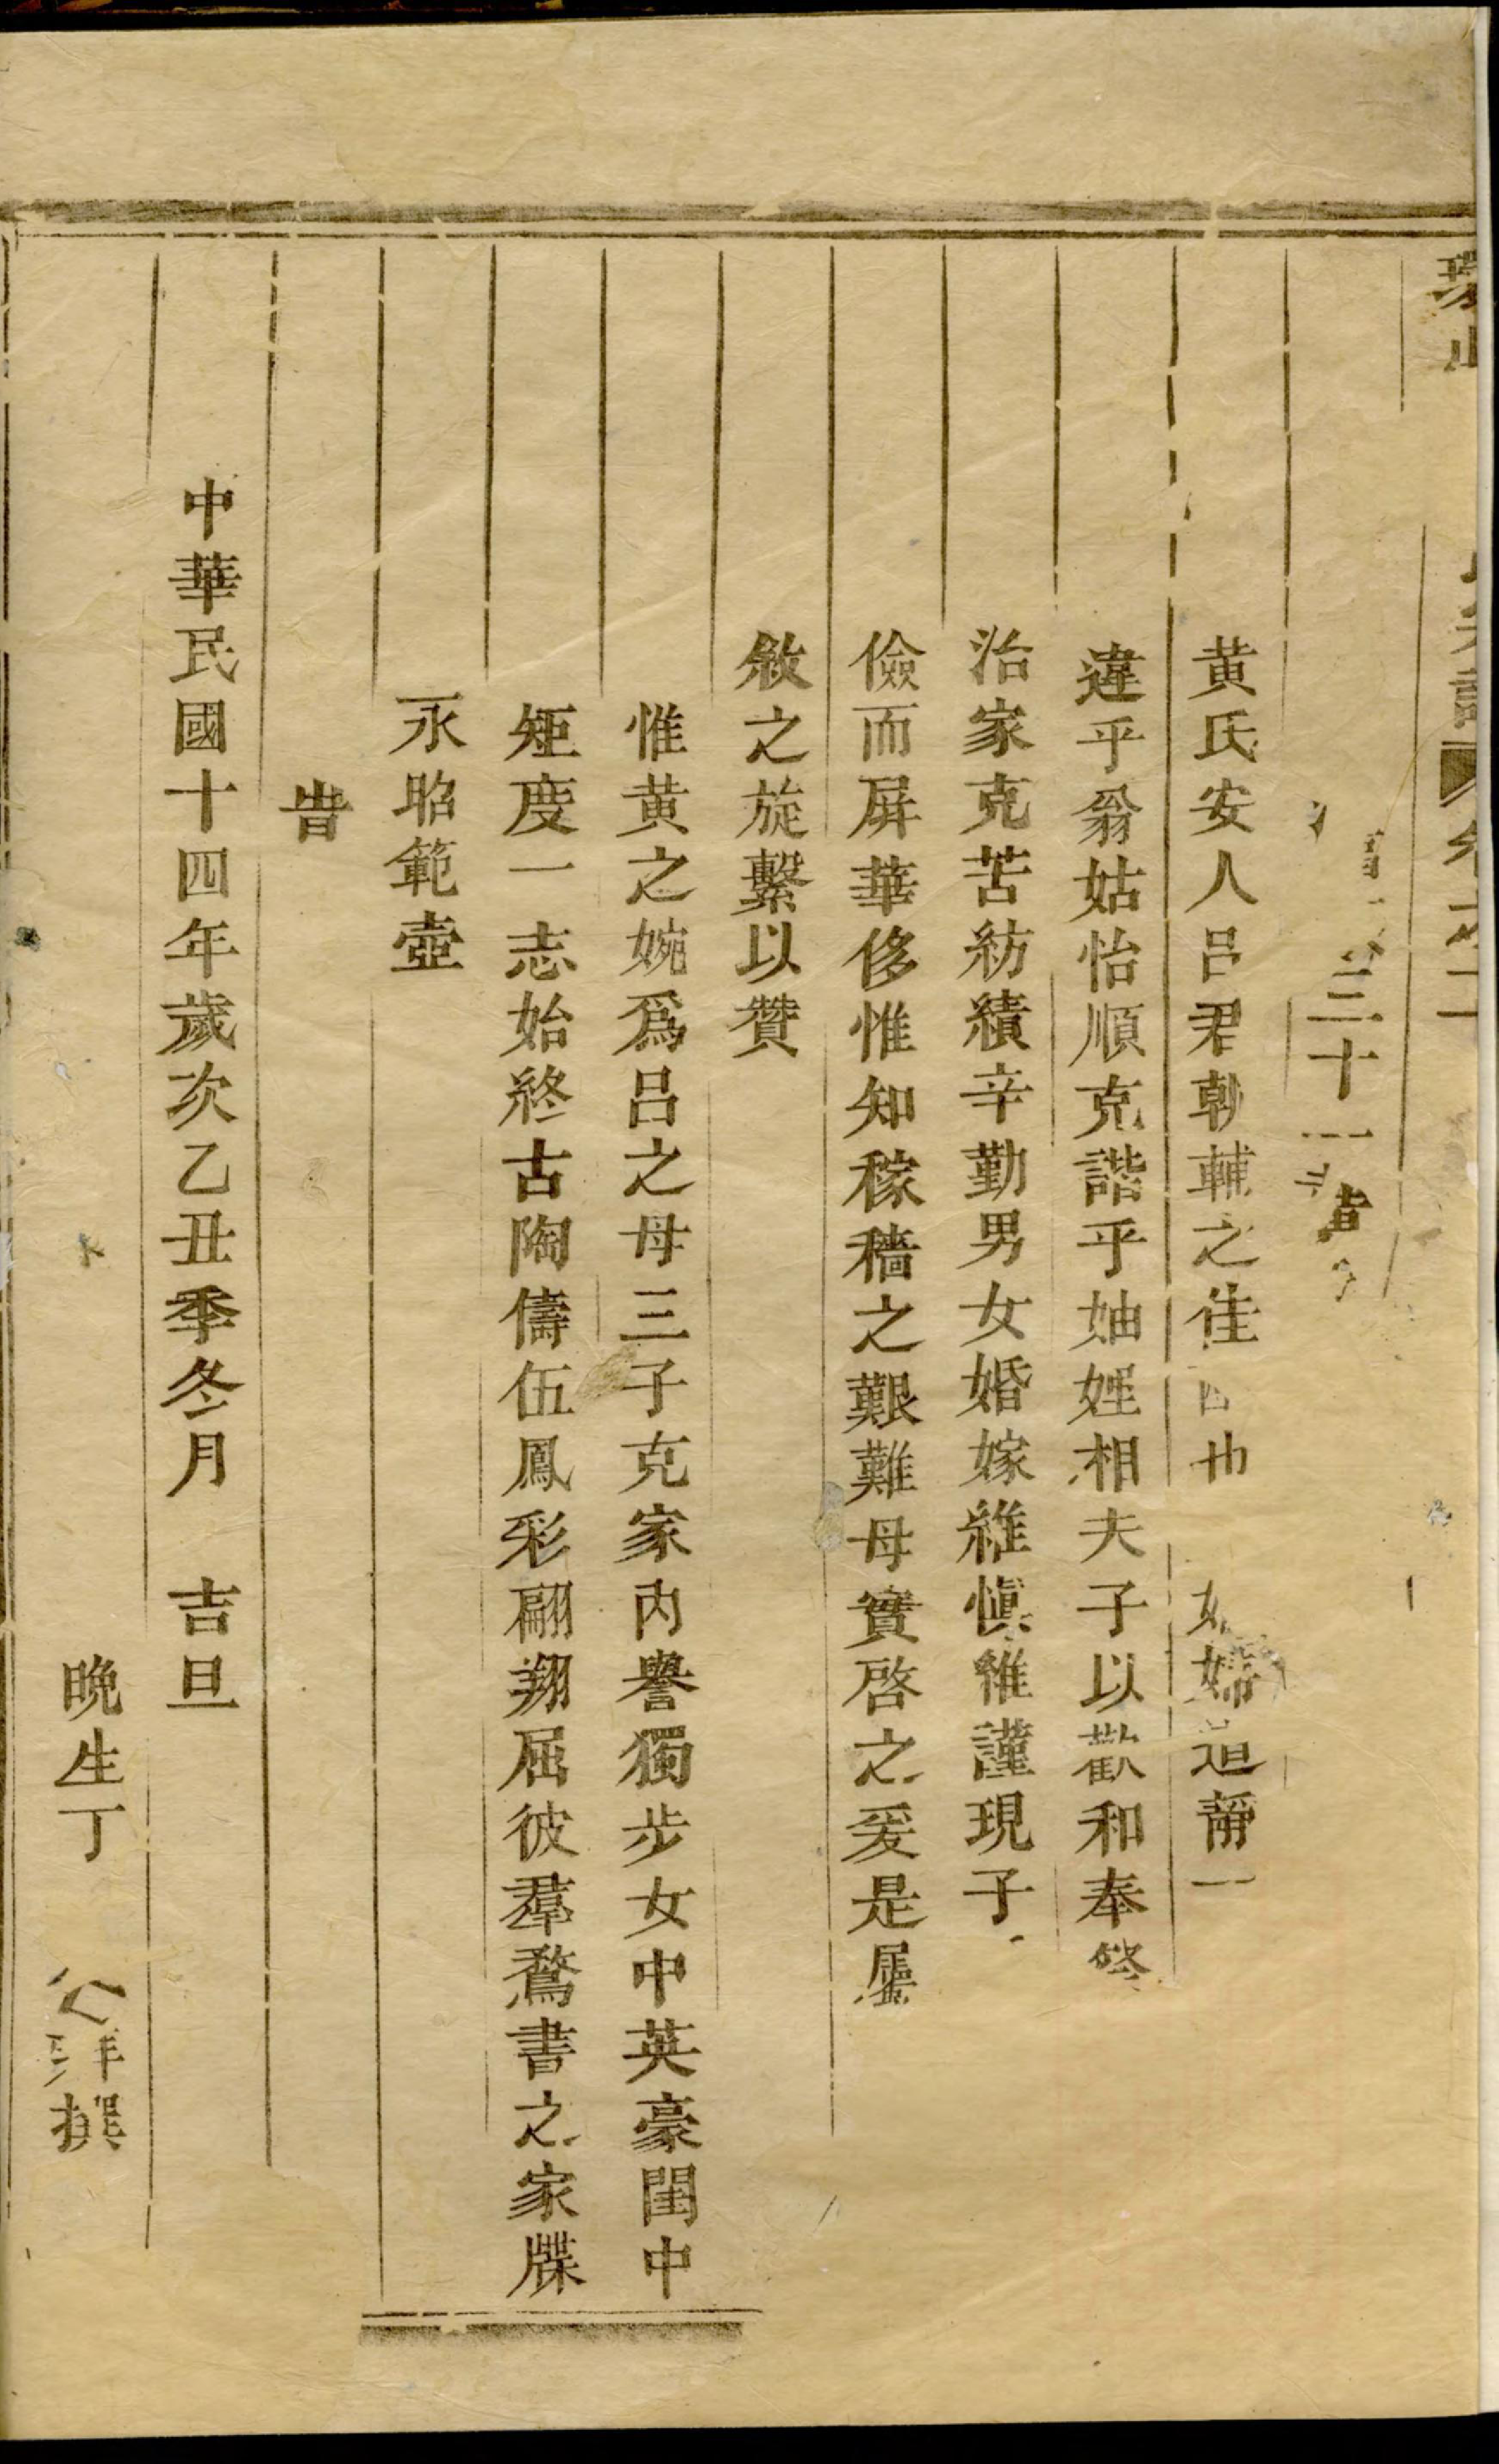 三十
黄氏安人吕君朝輔之佳也婦道靜一
違乎翁姑怡順克諧乎妯娌相夫子以歡和奉
治家克苦紡績辛勤男女婚嫁維慎惟謹現子
儉而屏華侈惟知稼穡之艱難母實啓之爰是屬
敘之旋繫以贊
惟黄之婉爲吕之母三子克家内譽獨步女中英豪閨中
矩度一志始終古陶儔伍鳳彩翩翔屈彼羣鶩書之家牒
永昭範壼
旹
中華民國十四年歲次乙丑季冬月 吉旦
晚生丁 撰